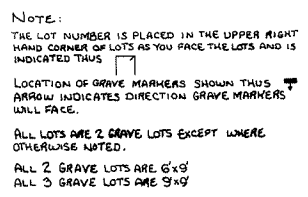 NOTE:
THE LOT NUMBER IS PLACED IN THE UPPER RIGHT
HAND CORNER OF LOTS AS YOU FACE THE LOTS AND IS
INDICATED THUS
LOCATION OF GRAVE MARKERS SHOWN THUS
ARROW INDICATES DIRECTION GRAVE MARKERS
WILL FACE.
ALL LOTS ARE 2 GRAVE LOTS EXCEPT WHERE
OTHERWISE NOTED.
ALL 2 GRAVE LOTS ARE 6'x9'
ALL 3 GRAVE LOTS ARE 9'x9'